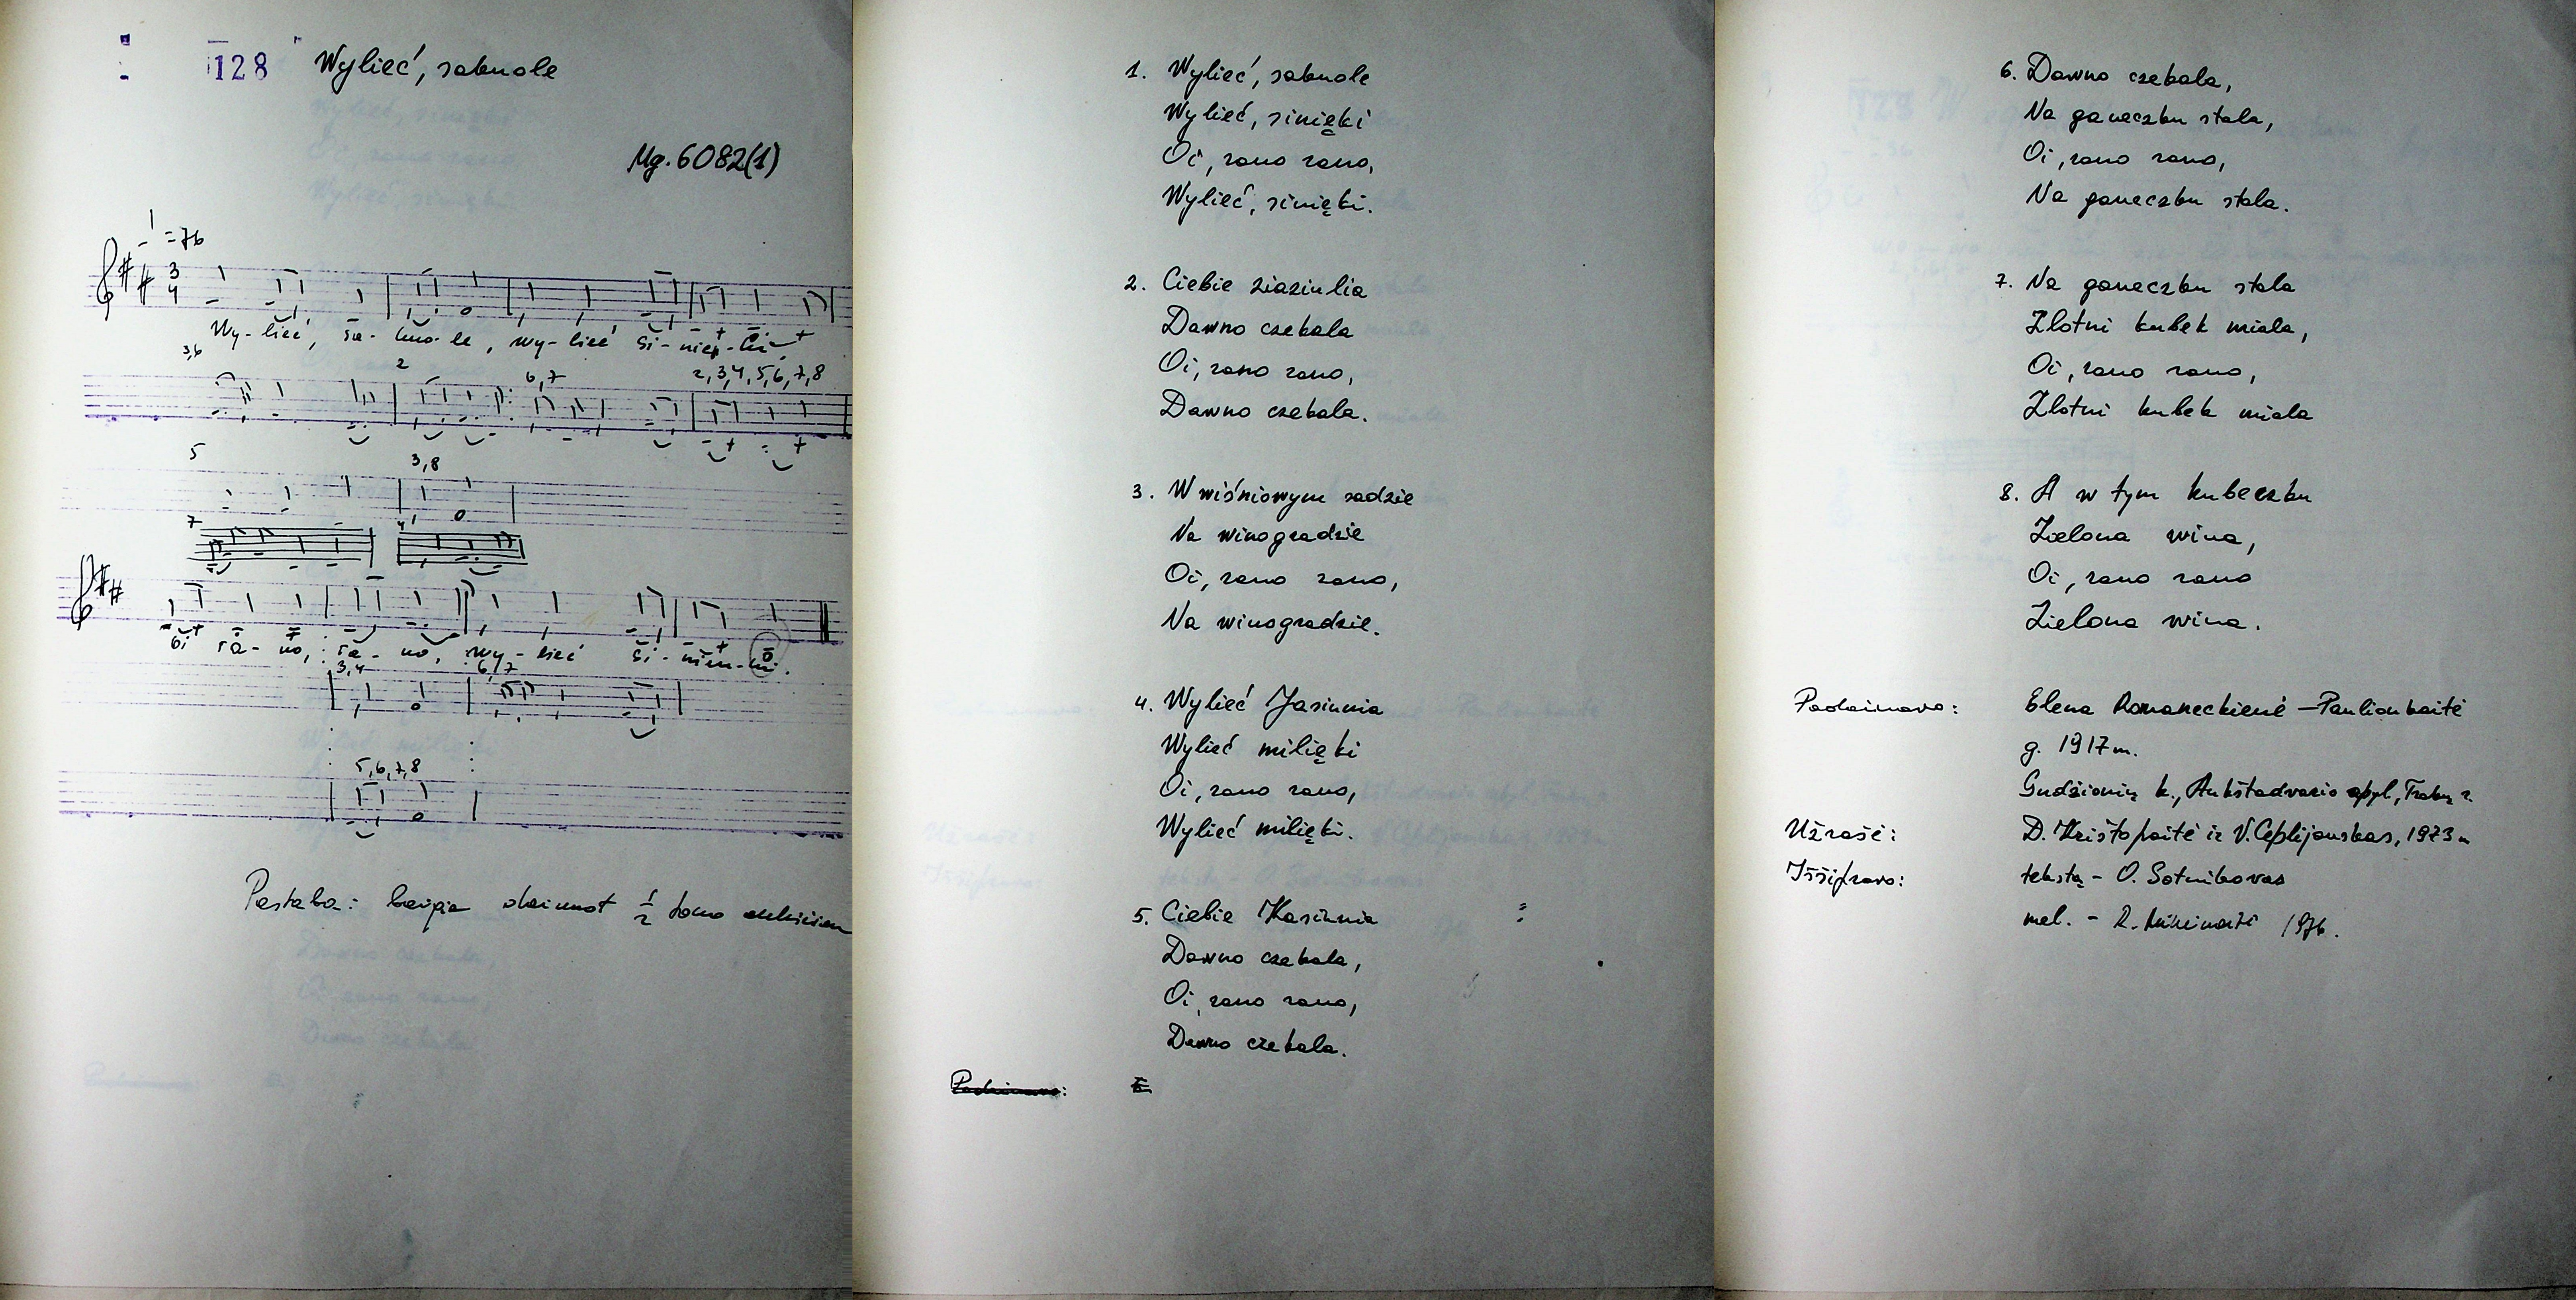 128 Wylieć, sakuole
Mg. 6082(1)
=76
3
4
Wy-lieć, sa-kuo-le, wy-lieć si-nięn-ki
3,6
2
6,7
2,3,4,5,6,7,8
5
3,8
7
4
Oi ra-no, ra-no, wy-lieć si-
3,4
6,7
5,6,7,8
Pastaba: baigia dainuot 1/2 tono
1. Wylieć, sakuole
Wylieć, sinięki
Oi, rano rano,
Wylieć, sinięki.
2. Ciebie ziaziulia
Dawno czekala
Oi, rano rano,
Dawno czekala.
3. W wiśniowym sadzie
Na winogradzie
Oi, rano rano,
Na winogradzie.
4. Wylieć Jasiunia
Wylieć milięki
Oi, rano rano,
Wylieć milięki.
5. Ciebie Kasiunia
Dawno czekala,
Oi, rano rano,
Dawno czekala.
Padainavo:
6. Dawno czekala,
Na ganeczku stala,
Oi, rano rano,
Na ganeczku stala.
7. Na ganeczku stala
Zlotni kubek miala,
Oi, rano rano,
Zlotni kubek miala
8. A w tym kubeczku
Zielona wina,
Oi, rano rano
Zielona wina.
Padainavo: Elena Romaneckienė-Paulionkaitė
g. 1917 m.
Gudžionių k., Aukštadvario apyl., Trakų r.
Užrašė: D. Krištopaitė ir V. Ceplijauskas, 1973 m
Iššifravo: tekstą - O. Sotnikovas
mel. - R. 1976.